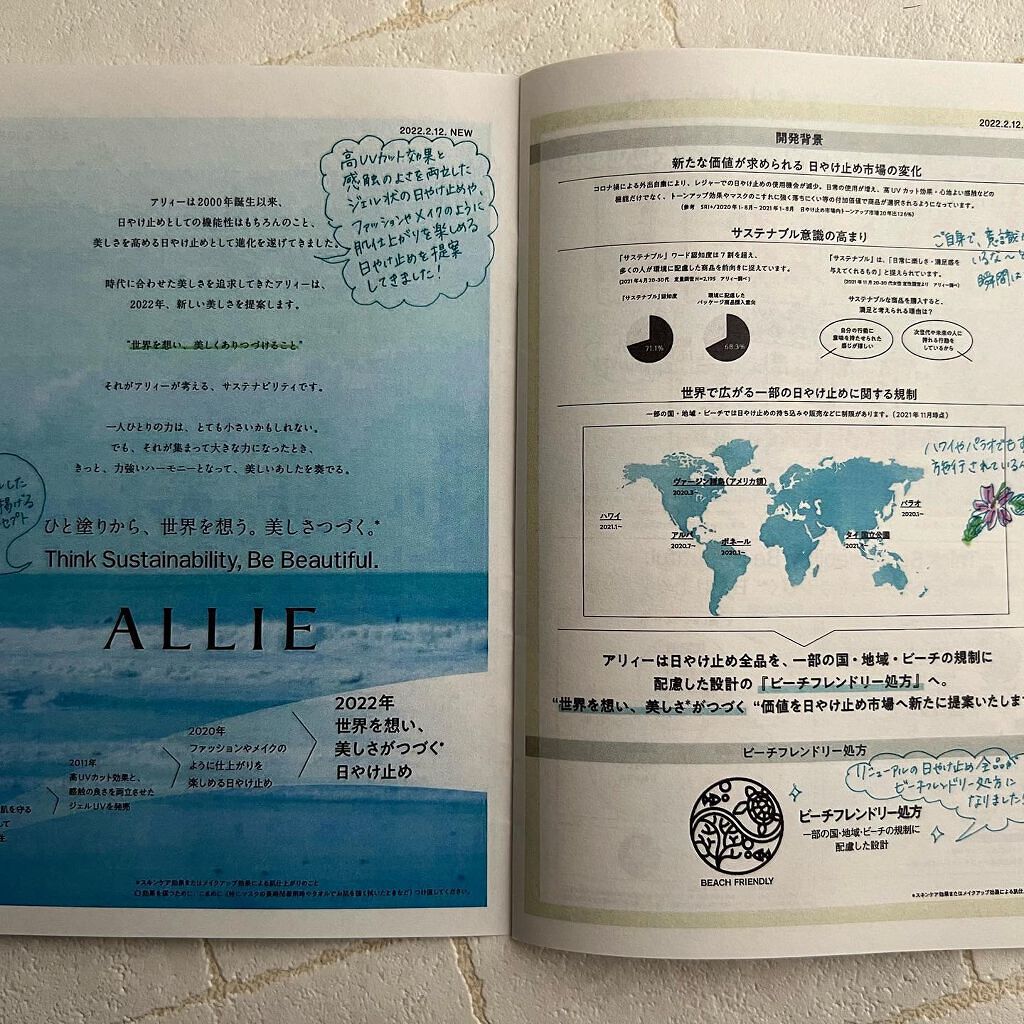 2022.2.12. NEW
高UVカット効果と
感触のよさを両立した
ジェル状の日やけ止めや、
ファッションやメイクのように
肌仕上がりを楽しめる
日やけ止めを提案
してきました！
アリィーは2000年誕生以来、
日やけ止めとしての機能性はもちろんのこと、
美しさを高める日やけ止めとして進化を遂げてきました。
時代に合わせた美しさを追求してきたアリィーは、
2022年、新しい美しさを提案します。
"世界を想い、美しくありつづけること"
それがアリィーが考える、サステナビリティです。
一人ひとりの力は、とても小さいかもしれない。
でも、それが集まって大きな力になったとき、
きっと、力強いハーモニーとなって、美しいあしたを奏でる。
した
掲げる
セプト
ひと塗りから、世界を想う。美しさつづく。*
Think Sustainability, Be Beautiful.
ALLIE
2022年
世界を想い、
美しさがつづく*
日やけ止め
2020年
ファッションやメイクの
ように仕上がりを
楽しめる日やけ止め
2011年
高UVカット効果と、
感触の良さを両立させた
ジェルUVを発売
肌を守る
して
生
*スキンケア効果またはメイクアップ効果による肌仕上がりのこと
2022.2.12.
開発背景
新たな価値が求められる 日やけ止め市場の変化
コロナ禍による外出自粛により、レジャーでの日やけ止めの使用機会が減少。日常の使用が増え、高UVカット効果・心地よい感触などの
機能だけでなく、トーンアップ効果やマスクのこすれに強く落ちにくい等の付加価値で商品が選択されるようになっています。
(参考 SRI+/2020年1-8月~2021年1-8月 日やけ止め市場内トーンアップ市場20年比126%)
サステナブル意識の高まり
「サステナブル」ワード認知度は7割を超え、
多くの人が環境に配慮した商品を前向きに捉えています。
(2021年4月 20-30代 定量調査 N=2,195 アリィー調べ)
「サステナブル」は、「日常に楽しさ・満足感を
与えてくれるもの」と捉えられています。
(2021年11月 20-30代女性 定性調査より アリィー調べ)
ご自粛で、意識
瞬間は
「サステナブル」認知度
71.1%
環境に配慮した
パッケージ商品購入意向
68.3%
サステナブルな商品を購入すると、
満足と考えられる理由は？
自分の行動に
意味を持たせられた
感じが嬉しい
次世代や未来の人に
誇れる行動を
しているから
世界で広がる一部の日やけ止めに関する規制
一部の国・地域・ビーチでは日やけ止めの持ち込みや販売などに制限があります。(2021年11月時点)
ハワイやパラオでもす
施行されているん
ヴァージン諸島(アメリカ領)
2020.3~
ハワイ
2021.1~
アルバ
2020.7~
ボネール
2020.1~
パラオ
2020.1~
タイ 国立公園
2021.8~
アリィーは日やけ止め全品を、一部の国・地域・ビーチの規制に
配慮した設計の『ビーチフレンドリー処方』へ。
"世界を想い、美しさ*がつづく "価値を日やけ止め市場へ新たに提案いたしま
ビーチフレンドリー処方
リニューアルの日やけ止め全品が
ビーチフレンドリー処方に
なりました
ビーチフレンドリー処方
一部の国・地域・ビーチの規制に
配慮した設計
BEACH FRIENDLY
*スキンケア効果またはメイクアップ効果による肌仕